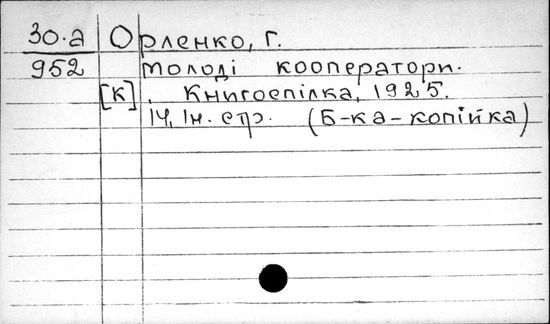 30.а Орленко, Г.
952 Молоді кооператори.
[К] , Книгоспілка, 1925.
14, Ін. стр. (Б-ка-копійка)